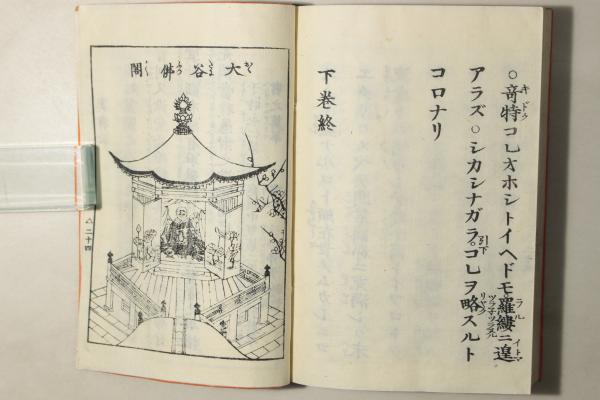 ○竒特コレオホシトイヘドモ羅縷ニ遑
アラズ○シカシナガラコレヲ略スルト
コロナリ
下巻終
大谷佛閣
二十四